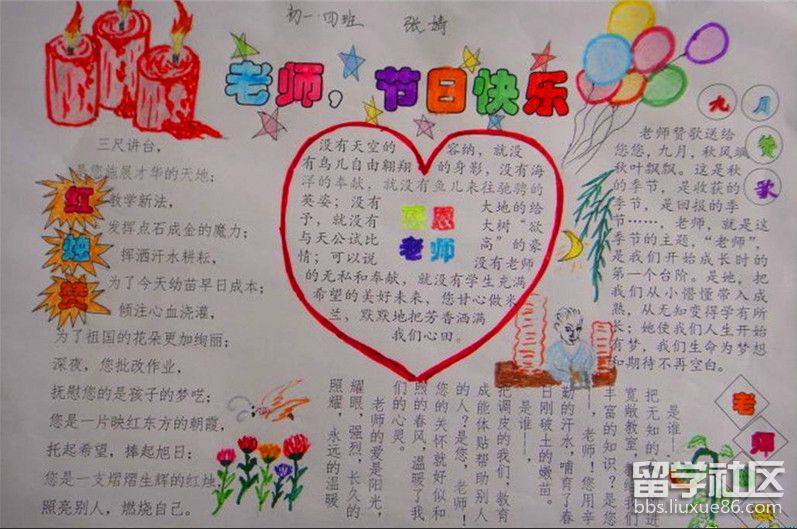 初一·四班 张婧
老师，节日快乐
三尺讲台，
是您施展才华的天地；
教学新法，
发挥点石成金的魔力；
挥洒汗水耕耘，
为了今天幼苗早日成本；
倾注心血浇灌，
为了祖国的花朵更加绚丽；
深夜，您批改作业，
抚慰您的是孩子的梦呓；
您是一片映红东方的朝霞，
托起希望，捧起旭日；
您是一支熠熠生辉的红烛，
照亮别人，燃烧自己。
红
烛
赞
没有天空的容纳，就没
有鸟儿自由翱翔的身影，没有海
洋的奉献，就没有鱼儿来往驰骋的
英姿；没有大地的给
予，就没有大树“欲
与天公试比高”的豪
情；可以说没有老师
的无私和奉献，就没有学生充满
希望的美好未来，您甘心做米
兰，默默地把芳香洒满
我们心田。
感恩
老师
九月
赞
歌
老师赞歌送给
您您，九月，秋风飒
秋叶飘飘。这是秋
的季节，是收获的
季节，是回报的季
节……，老师，就是这
的季节的主题，“老师”，
是我们开始成长时的
第一个台阶。是她，把
我们从小懵懂带入成
熟，从无知变得学有所
长；她使我们人生开始
有梦，我们生命为梦想
和期待不再空白。
是谁——
把无知的我们
宽敞教室，教给我们
丰富的知识？是您
——，老师！您用辛
勤的汗水，哺育了春
日刚破土的嫩苗。
是谁——，
把调皮的我们，教育
成能体贴帮助别人
的人？是您，老师！
您的关怀就好似和
照的春风，温暖了我
们的心灵。
老师的爱是阳光，
耀眼，强烈，长久的
照耀，永远的温暖
老
师
留学社区
bbs.liuxue86.com